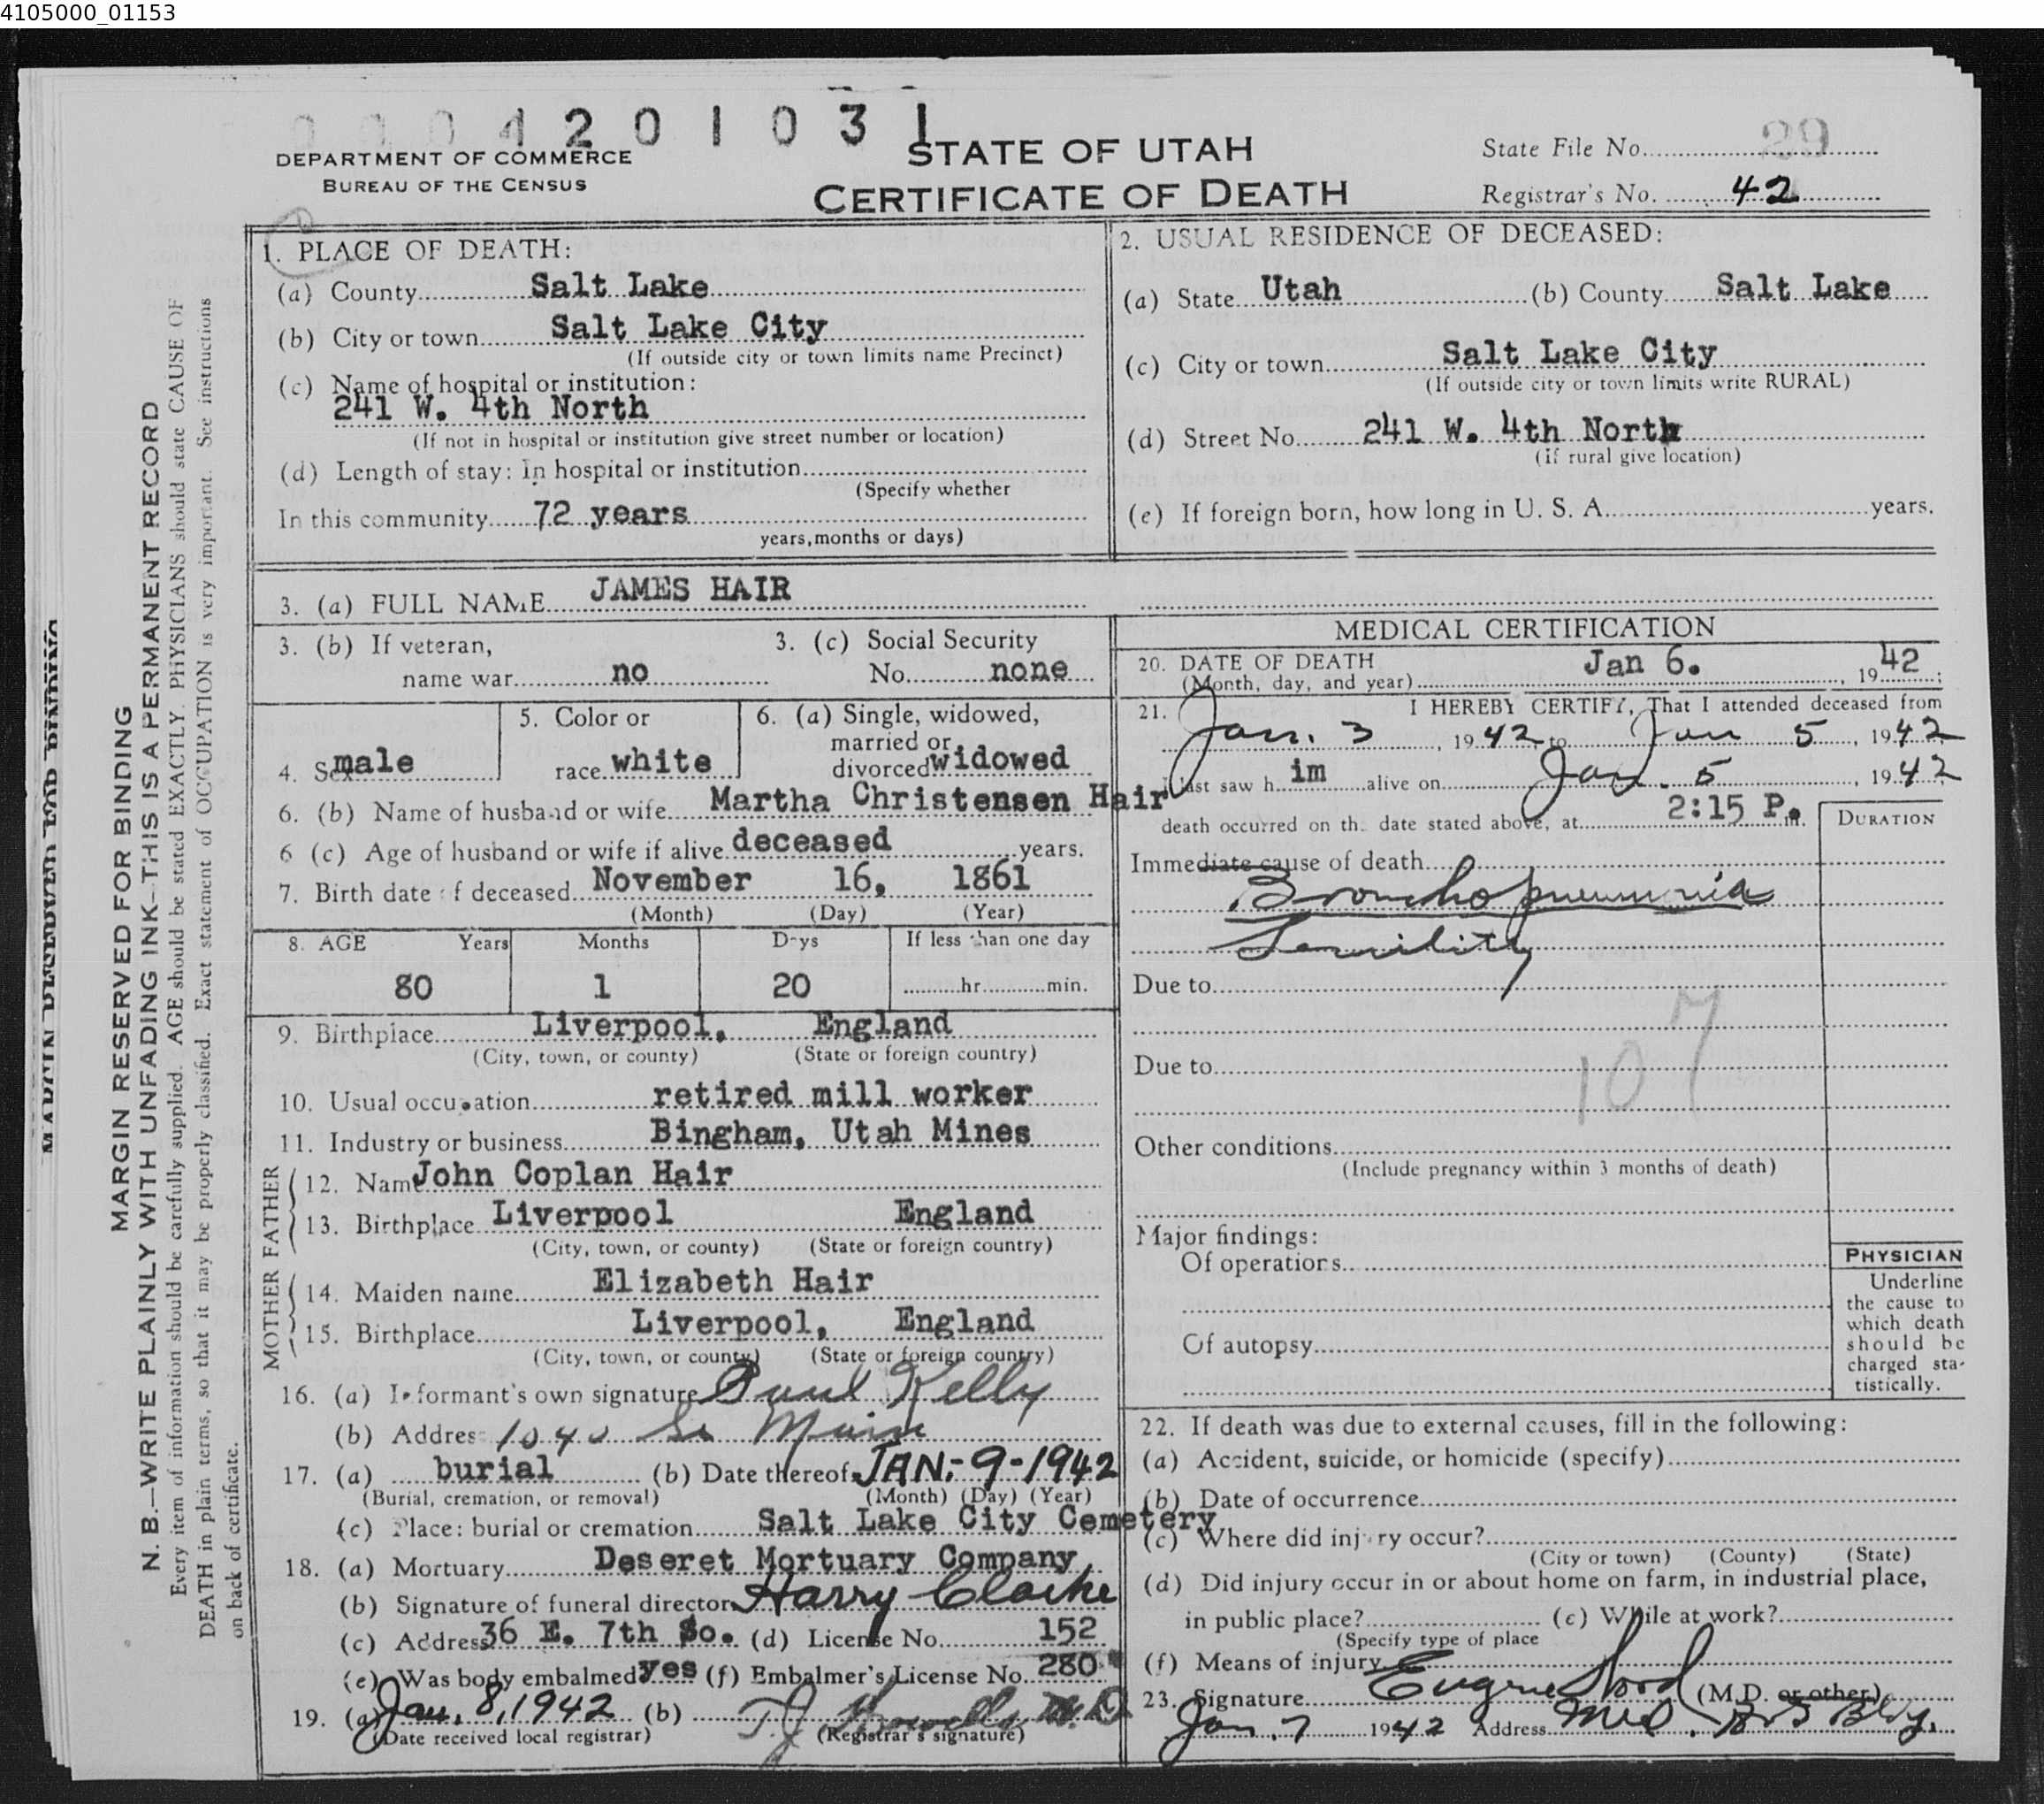 4105000_01153
0004201031
DEPARTMENT OF COMMERCE
BUREAU OF THE CENSUS
STATE OF UTAH
CERTIFICATE OF DEATH
State File No. 29
Registrar's No. 42
MARGIN RESERVED FOR BINDING
N. B.—WRITE PLAINLY WITH UNFADING INK—THIS IS A PERMANENT RECORD
Every item of information should be carefully supplied. AGE should be stated EXACTLY. PHYSICIANS should state CAUSE OF
DEATH in plain terms, so that it may be properly classified. Exact statement of OCCUPATION is very important. See instructions
on back of certificate.
1. PLACE OF DEATH:
(a) County Salt Lake
(b) City or town Salt Lake City
(If outside city or town limits name Precinct)
(c) Name of hospital or institution:
241 W. 4th North
(If not in hospital or institution give street number or location)
(d) Length of stay: In hospital or institution
(Specify whether
In this community 72 years
years, months or days)
2. USUAL RESIDENCE OF DECEASED:
(a) State Utah (b) County Salt Lake
(c) City or town Salt Lake City
(If outside city or town limits write RURAL)
(d) Street No. 241 W. 4th North
(if rural give location)
(e) If foreign born, how long in U. S. A. years.
3. (a) FULL NAME JAMES HAIR
3. (b) If veteran,
name war no
3. (c) Social Security
No. none
4. Sex male
5. Color or
race white
6. (a) Single, widowed,
married or
divorced widowed
6. (b) Name of husband or wife Martha Christensen Hair
6 (c) Age of husband or wife if alive deceased years.
7. Birth date of deceased November 16, 1861
(Month) (Day) (Year)
8. AGE Years Months Days If less than one day
80 1 20 hr. min.
9. Birthplace Liverpool, England
(City, town, or county) (State or foreign country)
10. Usual occupation retired mill worker
11. Industry or business Bingham, Utah Mines
FATHER
12. Name John Coplan Hair
13. Birthplace Liverpool England
(City, town, or county) (State or foreign country)
MOTHER
14. Maiden name Elizabeth Hair
15. Birthplace Liverpool, England
(City, town, or county) (State or foreign country)
16. (a) Informant's own signature Paul Kelly
(b) Address 1040 So Main
17. (a) burial (b) Date thereof JAN.-9-1942
(Burial, cremation, or removal) (Month) (Day) (Year)
(c) Place: burial or cremation Salt Lake City Cemetery
18. (a) Mortuary Deseret Mortuary Company
(b) Signature of funeral director Harry Clarke
(c) Address 36 E. 7th So. (d) License No. 152
(e) Was body embalmed yes (f) Embalmer's License No. 280
19. (a) Jan. 8, 1942 (b) T J Howells M.D
(Date received local registrar) (Registrar's signature)
MEDICAL CERTIFICATION
20. DATE OF DEATH
(Month, day, and year) Jan 6. , 1942;
21. I HEREBY CERTIFY, That I attended deceased from
Jan. 3, 1942 to Jan 5, 1942
I last saw him alive on Jan. 5, 1942
death occurred on the date stated above, at 2:15 P.m.
DURATION
Immediate cause of death
Bronchopneumonia
Senility
Due to
107
Due to
Other conditions
(Include pregnancy within 3 months of death)
Major findings:
Of operations
Of autopsy
PHYSICIAN
Underline
the cause to
which death
should be
charged sta-
tistically.
22. If death was due to external causes, fill in the following:
(a) Accident, suicide, or homicide (specify)
(b) Date of occurrence
(c) Where did injury occur?
(City or town) (County) (State)
(d) Did injury occur in or about home on farm, in industrial place,
in public place? (e) While at work?
(Specify type of place
(f) Means of injury
23. Signature Eugene Wood (M.D. or other)
Jan. 7 1942 Address Med. Arts Bldg.